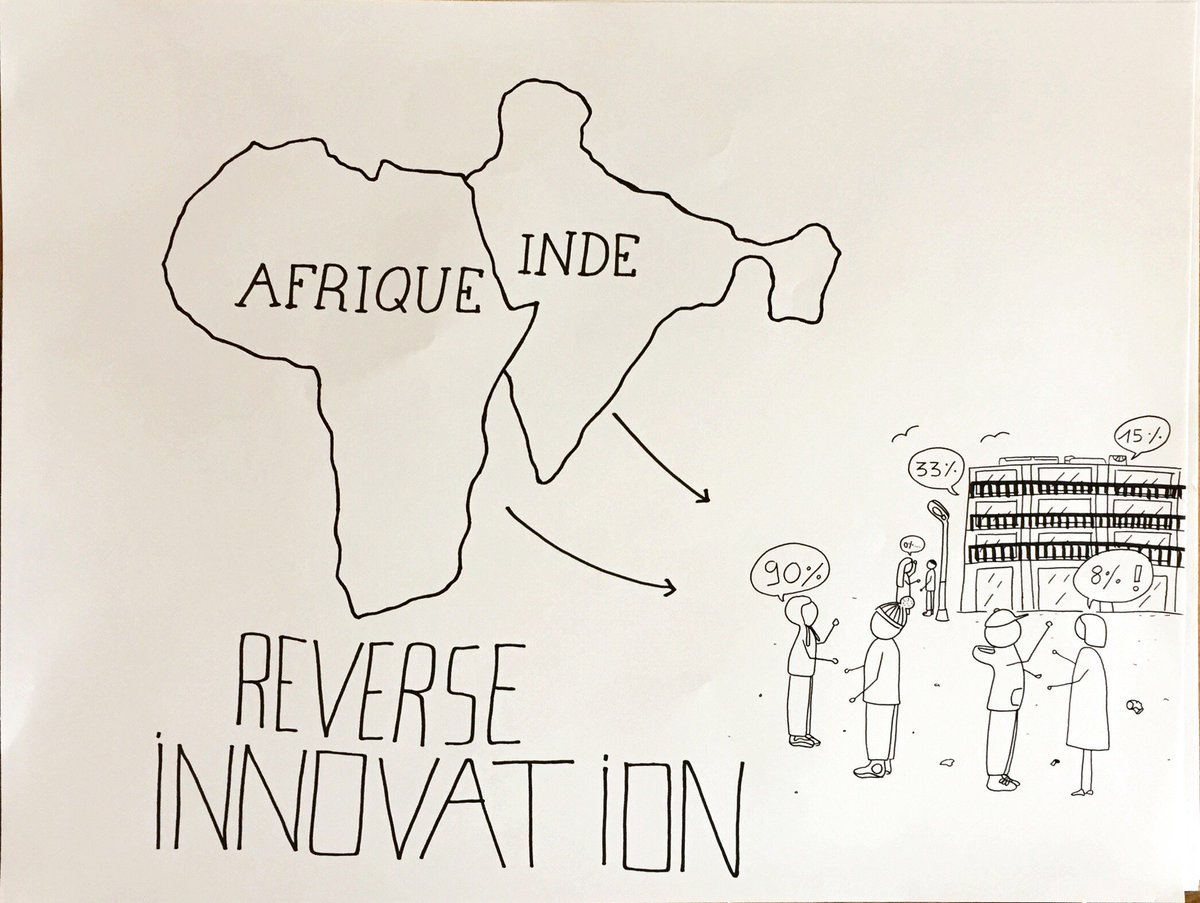 AFRIQUE
INDE
15%
33%
0%...
90%
8% !
REVERSE
iNNOVATiON